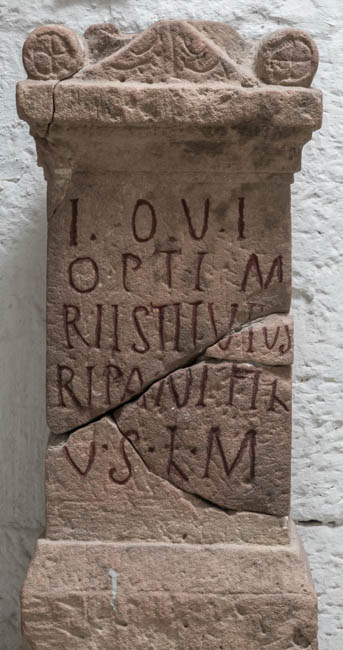 I. O.V.I
OPTIM
RIISTITVTIVS
RIPANI FIL
V·S·L·M